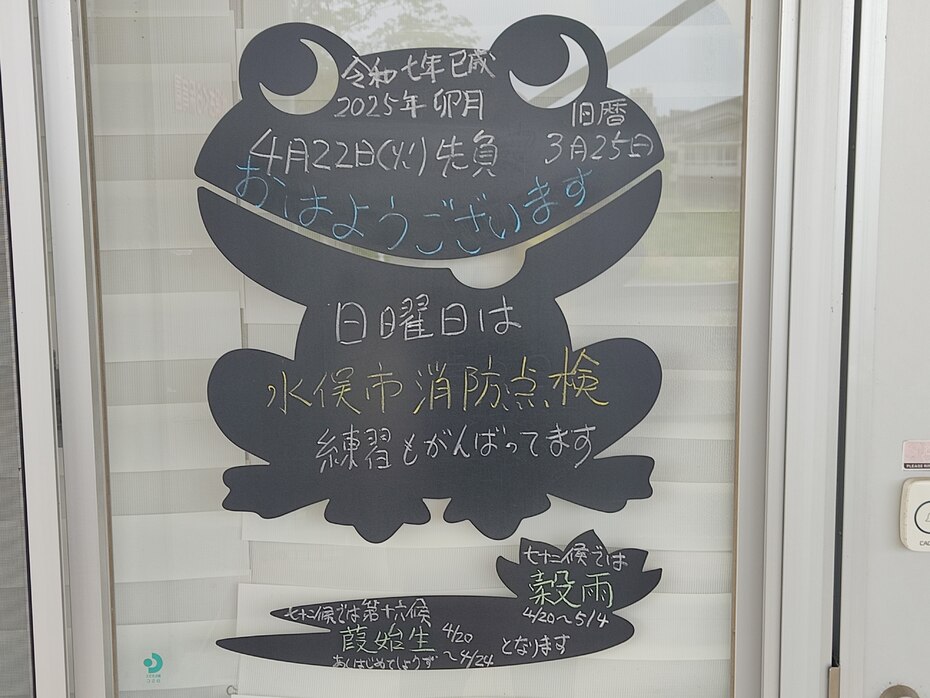 令和七年 己成
2025年 卯月
旧暦
4月22日(火)先負
3月25(日)
おはようございます
日曜日は
水俣市消防点検
練習もがんばってます
七十二候では
穀雨
4/20～5/4
七十二候では第十六候
葭始生
4/20
～4/24
あしはじめてしょうず
となります